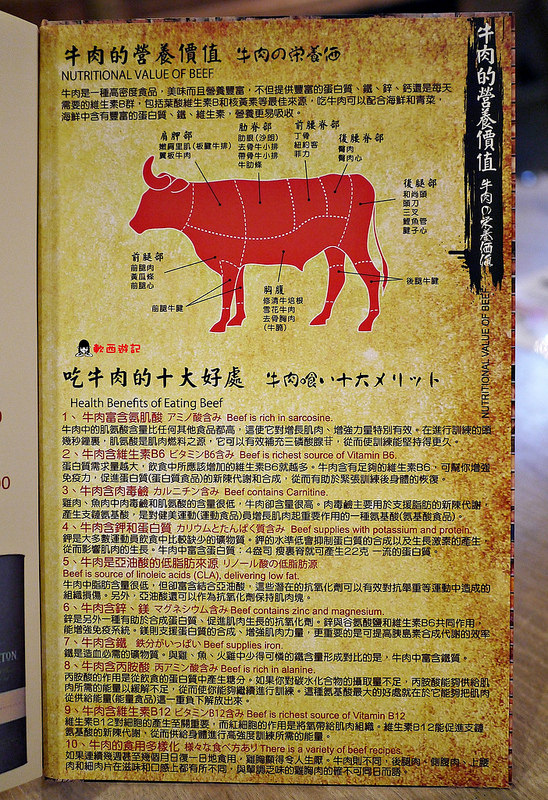 牛肉的營養價值 牛肉の栄養価
NUTRITIONAL VALUE OF BEEF
牛肉是一種高密度食品，美味而且營養豐富，不但提供豐富的蛋白質、鐵、鋅、鈣還是每天
需要的維生素B群，包括葉酸維生素B和核黃素等最佳來源，吃牛肉可以配合海鮮和青菜，
海鮮中含有豐富的蛋白質、鐵、維生素，營養更易吸收。
肩胛部
嫩肩里肌(板腱牛排)
翼板牛肉
肋脊部
肋眼(沙朗)
去骨牛小排
帶骨牛小排
牛肋條
前腰脊部
丁骨
紐約客
菲力
後腰脊部
臀肉
臀肉心
後腿部
和尚頭
頭刀
三叉
鯉魚管
腱子心
前腿部
前腿肉
黃瓜條
前腿心
前腿牛腱
胸腹
修清牛培根
雪花牛肉
去骨胸肉
(牛腩)
後腿牛腱
軟西遊記
吃牛肉的十大好處 牛肉喰い十大メリット
Health Benefits of Eating Beef
1、牛肉富含氨肌酸 アミノ酸含み Beef is rich in sarcosine.
牛肉中的肌氨酸含量比任何其他食品都高，這使它對增長肌肉、增強力量特別有效。在進行訓練的頭
幾秒鐘裏，肌氨酸是肌肉燃料之源，它可以有效補充三磷酸腺苷，從而使訓練能堅持得更久。
2、牛肉含維生素B6 ビタミンB6含み Beef is richest source of Vitamin B6.
蛋白質需求量越大，飲食中所應該增加的維生素B6就越多。牛肉含有足夠的維生素B6，可幫你增強
免疫力，促進蛋白質(蛋白質食品)的新陳代謝和合成，從而有助於緊張訓練後身體的恢復。
3、牛肉含肉毒鹼 カルニチン含み Beef contains Carnitine.
雞肉、魚肉中肉毒鹼和肌氨酸的含量很低，牛肉卻含量很高。肉毒鹼主要用於支援脂肪的新陳代謝
產生支鏈氨基酸，是對健美運動(運動食品)員增長肌肉起重要作用的一種氨基酸(氨基酸食品)。
4、牛肉含鉀和蛋白質 カリウムとたんぱく質含み Beef supplies with potassium and protein.
鉀是大多數運動員飲食中比較缺少的礦物質。鉀的水準低會抑制蛋白質的合成以及生長激素的產生
從而影響肌肉的生長。牛肉中富含蛋白質：4盎司 瘦裏脊就可產生22克 一流的蛋白質
5、牛肉是亞油酸的低脂肪來源 リノール酸の低脂肪源
Beef is source of linoleic acids (CLA), delivering low fat.
牛肉中脂肪含量很低，但卻富含結合亞油酸，這些潛在的抗氧化劑可以有效對抗舉重等運動中造成的
組織損傷。另外，亞油酸還可以作為抗氧化劑保持肌肉塊。
6、牛肉含鋅、鎂 マグネシウム含み Beef contains zinc and magnesium.
鋅是另外一種有助於合成蛋白質、促進肌肉生長的抗氧化劑。鋅與谷氨酸鹽和維生素B6共同作用
能增強免疫系統。鎂則支援蛋白質的合成、增強肌肉力量，更重要的是可提高胰島素合成代謝的效率
7、牛肉含鐵 鉄分がいっぱい Beef supplies iron.
鐵是造血必需的礦物質。與雞、魚、火雞中少得可憐的鐵含量形成對比的是，牛肉中富含鐵質。
8、牛肉含丙胺酸 丙アミン酸含み Beef is rich in alanine.
丙胺酸的作用是從飲食的蛋白質中產生糖分。如果你對破水化合物的攝取量不足，丙胺酸能夠供給肌
肉所需的能量以緩解不足，從而使你能夠繼續進行訓練。這種氨基酸最大的好處就在於它能夠把肌肉
從供給能量(能量食品)這一重負下解放出來。
9、牛肉含維生素B12 ビタミンB12含み Beef is richest source of Vitamin B12
維生素B12對細胞的產生至關重要，而紅細胞的作用是將氧帶給肌肉組織。維生素B12能促進支鏈
氨基酸的新陳代謝，從而供給身體進行高強度訓練所需的能量。
10、牛肉的食用多樣化 様々な食べ方あり There is a variety of beef recipes.
如果連續幾週甚至幾個月日復一日地食用，雞胸顯得令人生厭。牛肉則不同，後腿肉、側腹肉、上腰
肉和細肉片在滋味和口感上都有所不同，與單調乏味的雞胸肉的確不可同日而語。
牛肉的營養價值 牛肉の栄養価値
NUTRITIONAL VALUE OF BEEF